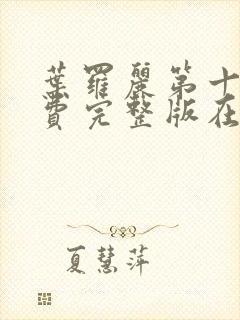 葉羅麗第十
費完整版在
夏慧萍